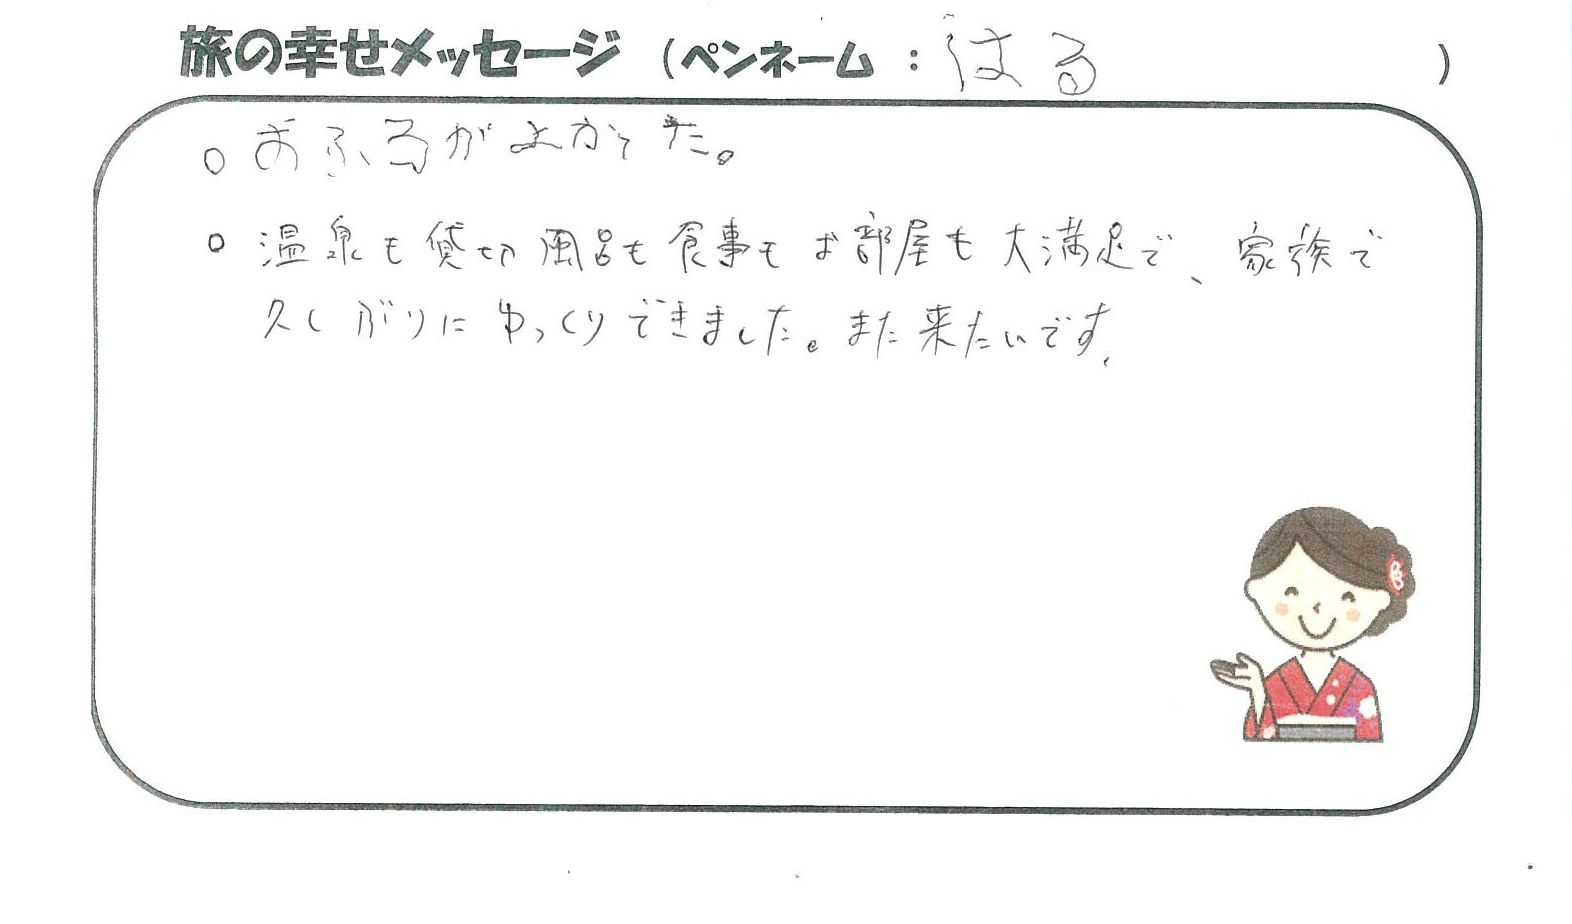 旅の幸せメッセージ (ペンネーム：はる)
○ おふろがよかった。
○ 温泉も貸切風呂も食事もお部屋も大満足で、家族で
久しぶりにゆっくりできました。また来たいです。